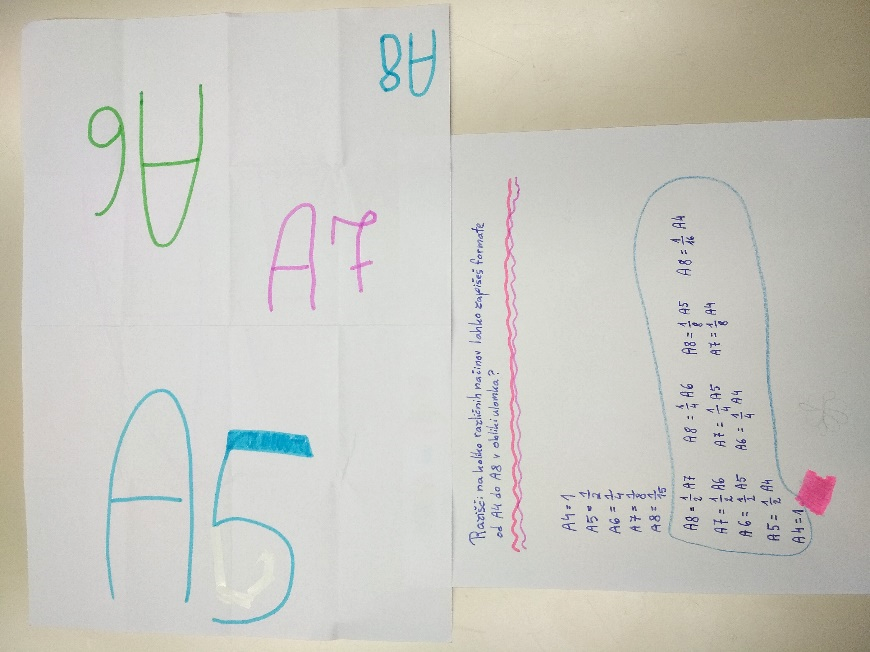 A8
A6
A7
A5
Razišči na koliko različnih načinov lahko zapišeš formate
od A4 do A8 v obliki ulomka?
A4=1
A5=1/2
A6=1/4
A7=1/8
A8=1/15
A8=1/2 A7 A8=1/4 A6 A8=1/8 A5 A8=1/16 A4
A7=1/2 A6 A7=1/4 A5 A7=1/8 A4
A6=1/2 A5 A6=1/4 A4
A5=1/2 A4
A4=1